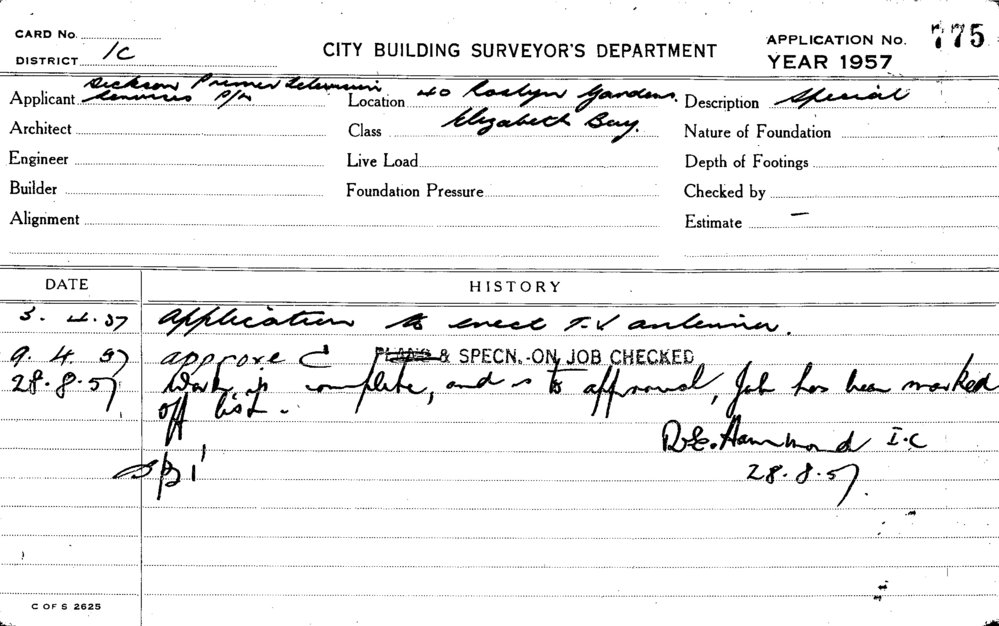 CARD No.
DISTRICT 1C
CITY BUILDING SURVEYOR'S DEPARTMENT
APPLICATION No. 775
YEAR 1957
Applicant Dickson Primer Television
Services P/L
Location 40 Roslyn Gardens.
Elizabeth Bay.
Description Special
Architect
Class
Nature of Foundation
Engineer
Live Load
Depth of Footings
Builder
Foundation Pressure
Checked by
Alignment
Estimate —
DATE HISTORY
3. 4. 57 Application to erect T.V antenna.
9. 4. 57 approved PLANS & SPECN. ON JOB CHECKED
28.8.57 Work is complete, and is to approval, Job has been marked
off list.
Hammond I.C
28.8.57.
C OF S 2625